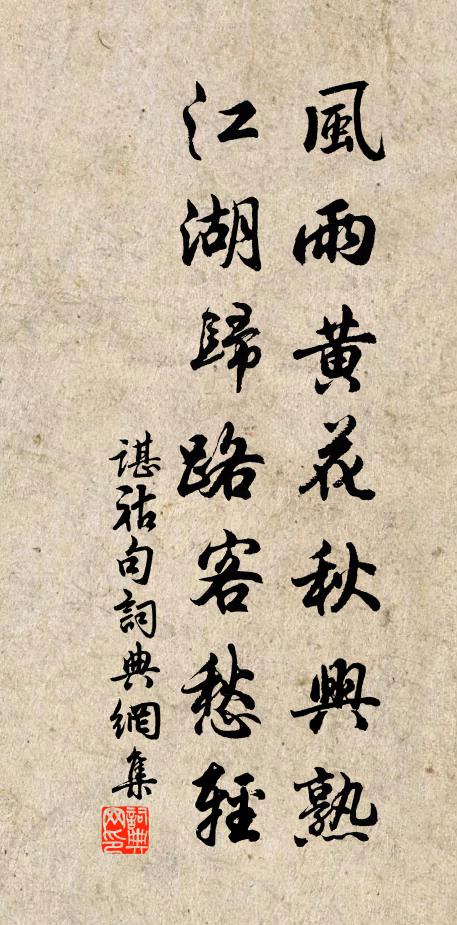 風雨黃花秋興熟
江湖歸路客愁輕
諶祜句詞典網集
詞典网印